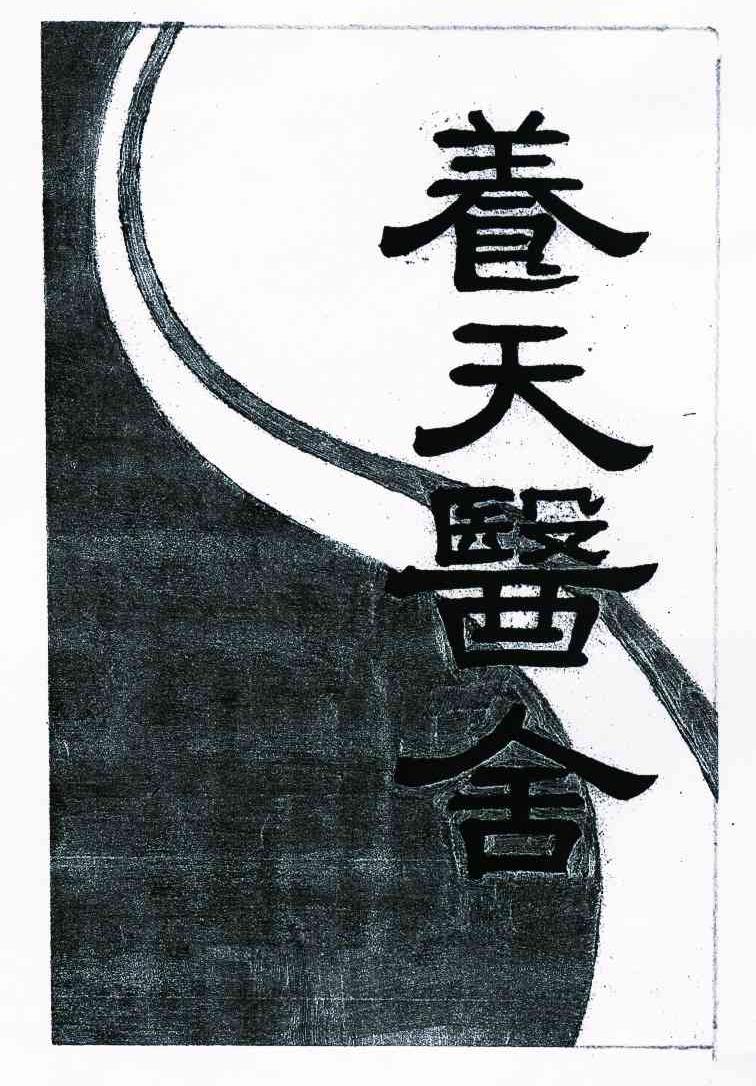 養天醫舍